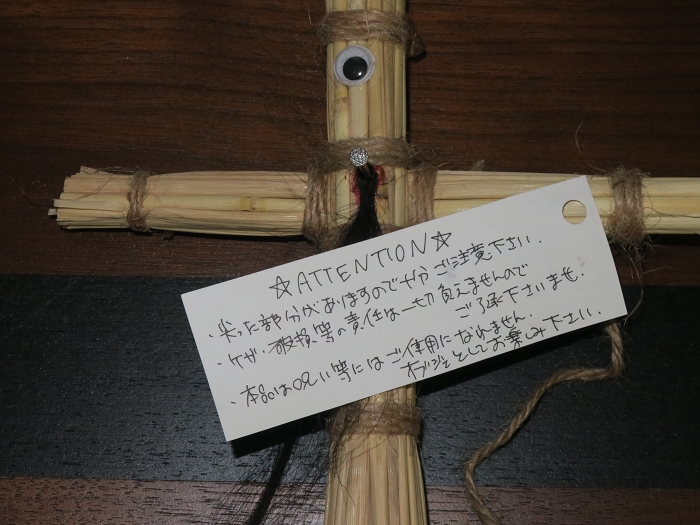 ☆ATTENTION☆
・尖った部分がありますので十分ご注意下さい.
・ケガ・破損等の責任は一切負えませんので
ご了承下さいませ.
・本品は呪い等にはご使用になれません.
オブジェとしてお楽しみ下さい.